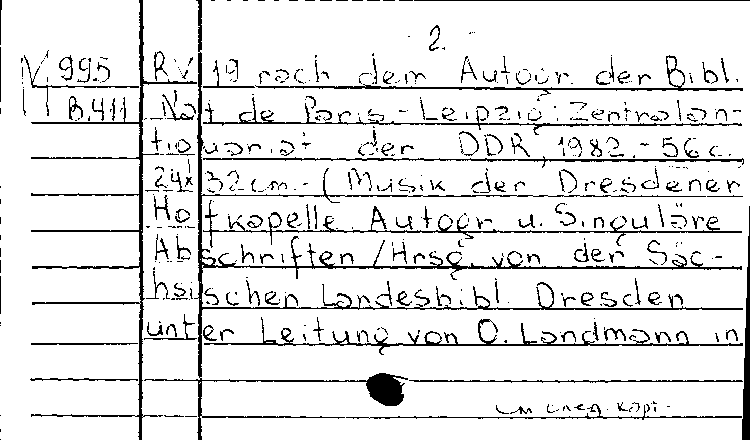 - 2 -
N 995 RV 19 nach dem Autogr. der Bibl.
B.411 Nat de Paris.- Leipzig: Zentralan-
tiquariat der DDR, 1982.- 56c.,
24x32cm.- (Musik der Dresdener
Hofkapelle Autogr. u. Singuläre
Abschriften /Hrsg. von der Säc-
hsischen Landesbibl. Dresden
unter Leitung von O. Landmann in
см след. карт.